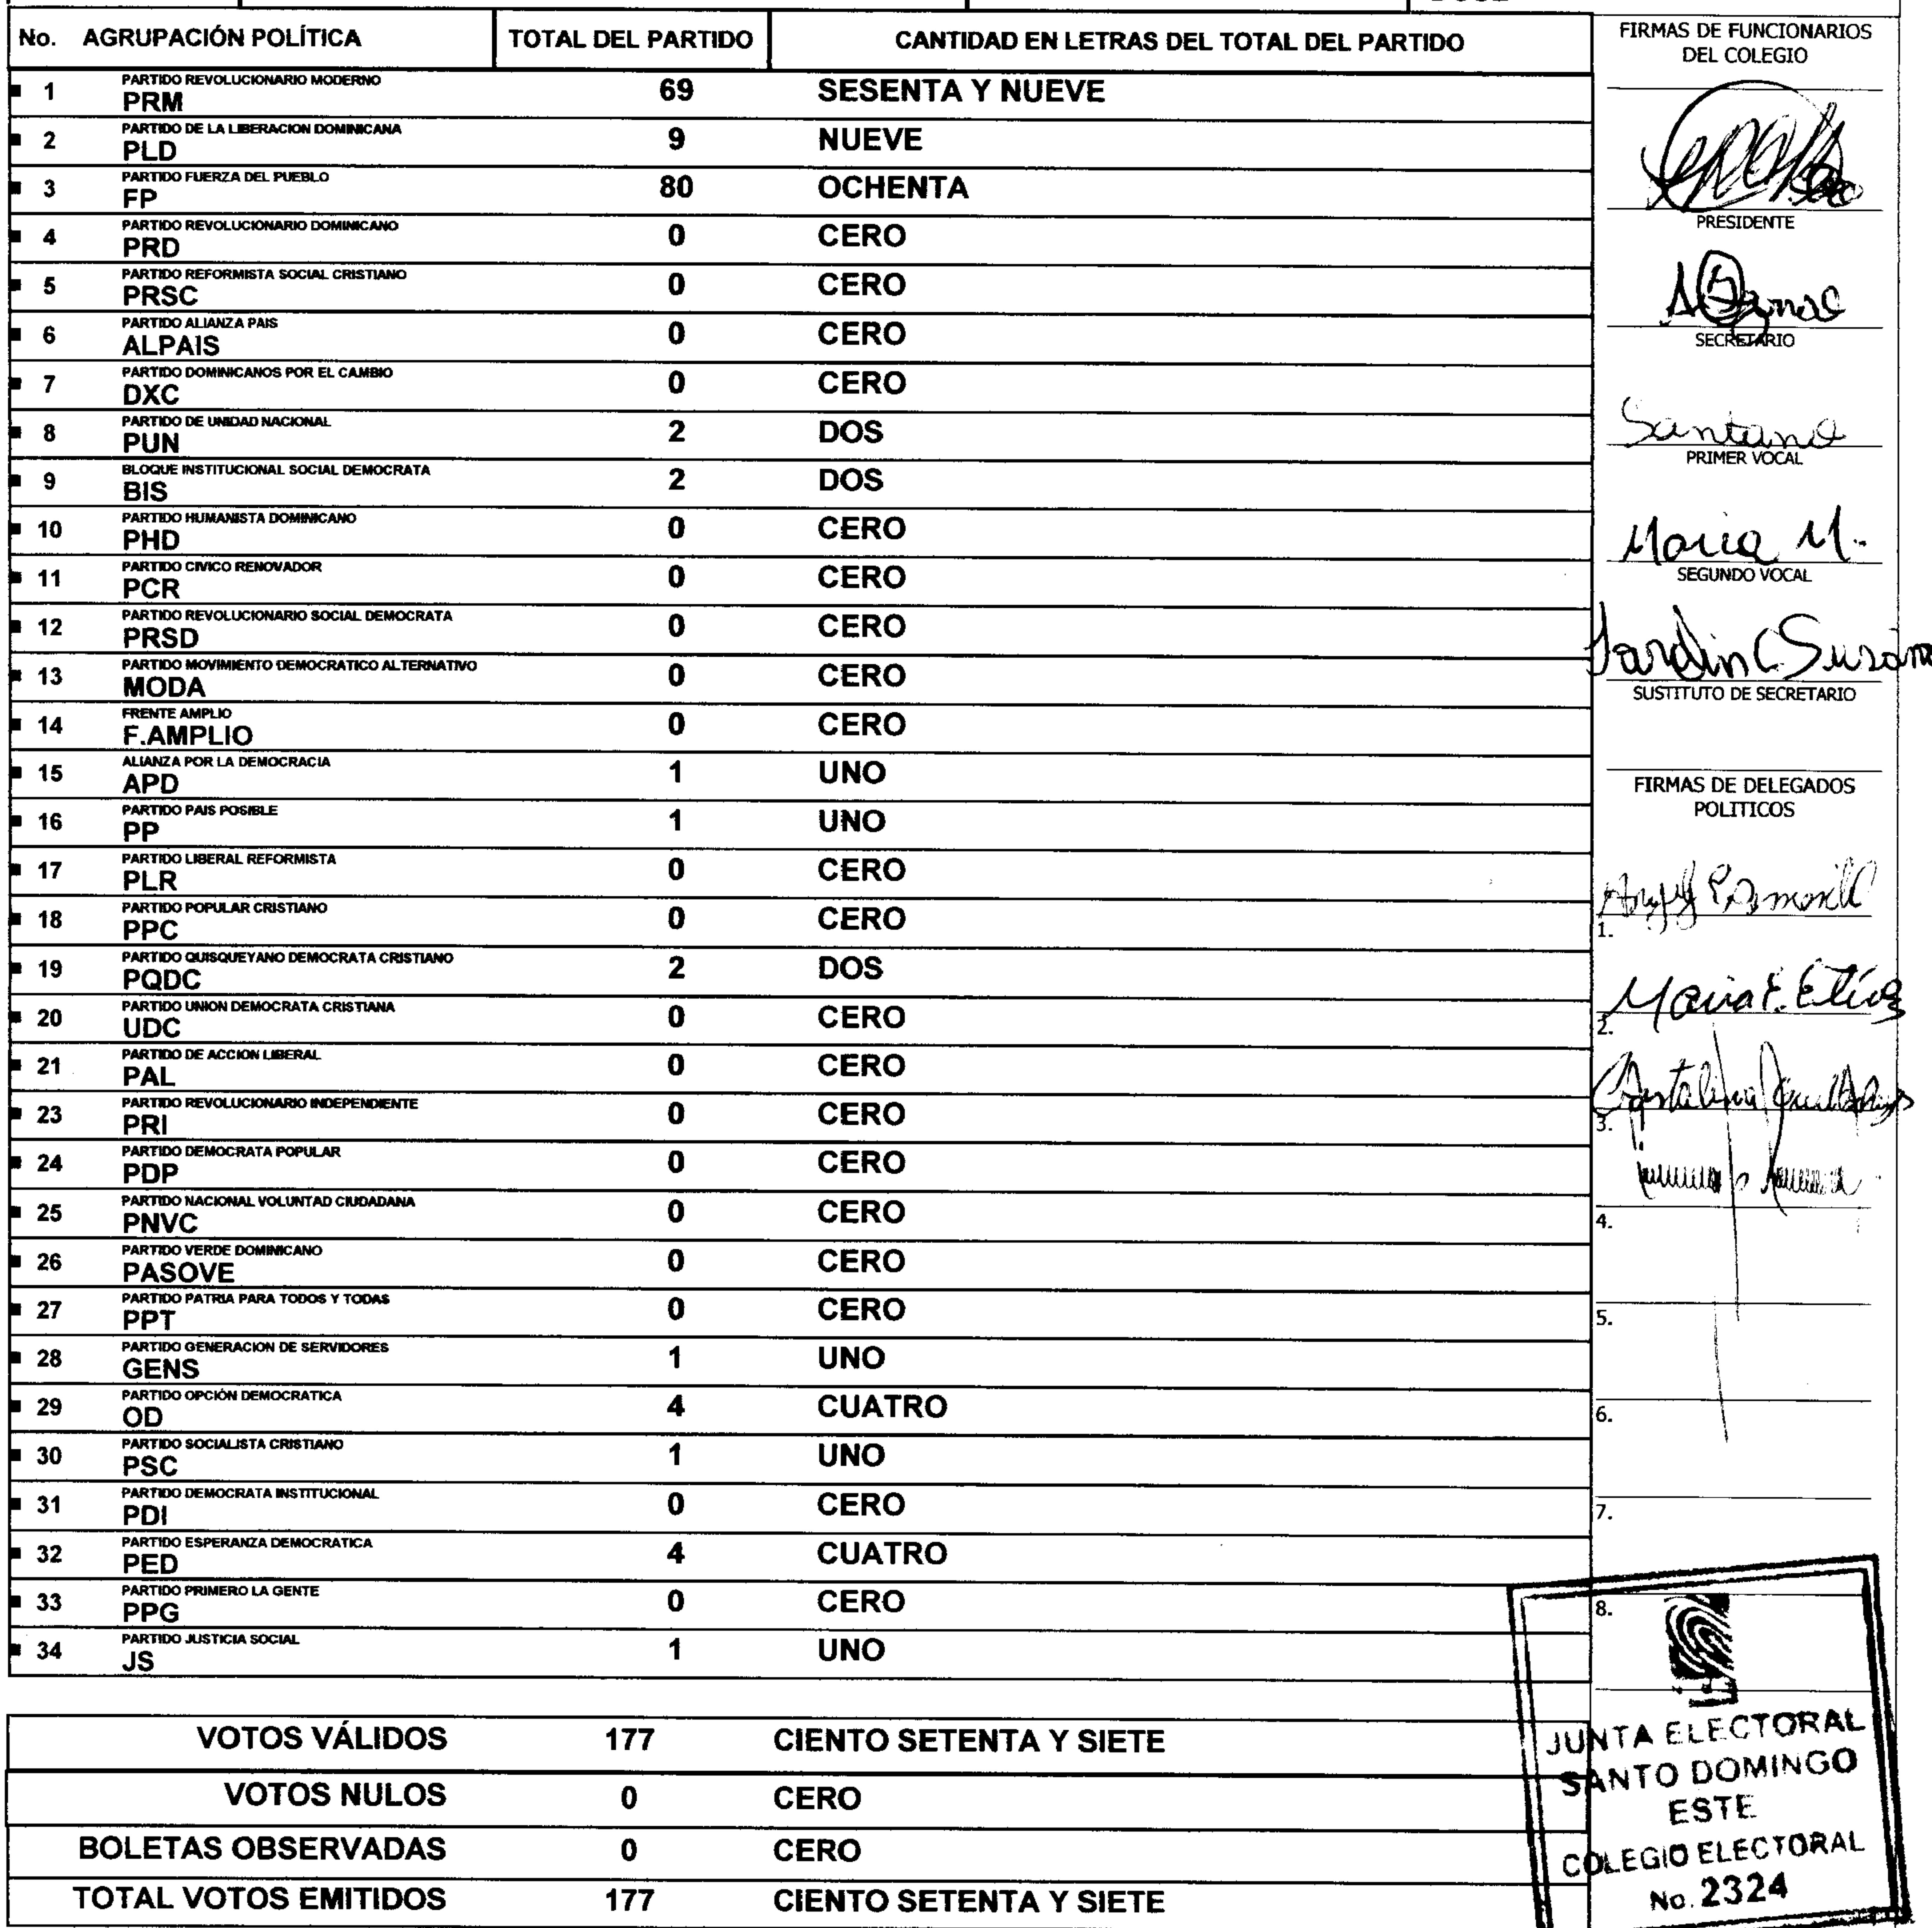 No. AGRUPACIÓN POLÍTICA TOTAL DEL PARTIDO CANTIDAD EN LETRAS DEL TOTAL DEL PARTIDO
1 PARTIDO REVOLUCIONARIO MODERNO
PRM 69 SESENTA Y NUEVE
2 PARTIDO DE LA LIBERACION DOMINICANA
PLD 9 NUEVE
3 PARTIDO FUERZA DEL PUEBLO
FP 80 OCHENTA
4 PARTIDO REVOLUCIONARIO DOMINICANO
PRD 0 CERO
5 PARTIDO REFORMISTA SOCIAL CRISTIANO
PRSC 0 CERO
6 PARTIDO ALIANZA PAIS
ALPAIS 0 CERO
7 PARTIDO DOMINICANOS POR EL CAMBIO
DXC 0 CERO
8 PARTIDO DE UNIDAD NACIONAL
PUN 2 DOS
9 BLOQUE INSTITUCIONAL SOCIAL DEMOCRATA
BIS 2 DOS
10 PARTIDO HUMANISTA DOMINICANO
PHD 0 CERO
11 PARTIDO CIVICO RENOVADOR
PCR 0 CERO
12 PARTIDO REVOLUCIONARIO SOCIAL DEMOCRATA
PRSD 0 CERO
13 PARTIDO MOVIMIENTO DEMOCRATICO ALTERNATIVO
MODA 0 CERO
14 FRENTE AMPLIO
F.AMPLIO 0 CERO
15 ALIANZA POR LA DEMOCRACIA
APD 1 UNO
16 PARTIDO PAIS POSIBLE
PP 1 UNO
17 PARTIDO LIBERAL REFORMISTA
PLR 0 CERO
18 PARTIDO POPULAR CRISTIANO
PPC 0 CERO
19 PARTIDO QUISQUEYANO DEMOCRATA CRISTIANO
PQDC 2 DOS
20 PARTIDO UNION DEMOCRATA CRISTIANA
UDC 0 CERO
21 PARTIDO DE ACCION LIBERAL
PAL 0 CERO
23 PARTIDO REVOLUCIONARIO INDEPENDIENTE
PRI 0 CERO
24 PARTIDO DEMOCRATA POPULAR
PDP 0 CERO
25 PARTIDO NACIONAL VOLUNTAD CIUDADANA
PNVC 0 CERO
26 PARTIDO VERDE DOMINICANO
PASOVE 0 CERO
27 PARTIDO PATRIA PARA TODOS Y TODAS
PPT 0 CERO
28 PARTIDO GENERACION DE SERVIDORES
GENS 1 UNO
29 PARTIDO OPCIÓN DEMOCRATICA
OD 4 CUATRO
30 PARTIDO SOCIALISTA CRISTIANO
PSC 1 UNO
31 PARTIDO DEMOCRATA INSTITUCIONAL
PDI 0 CERO
32 PARTIDO ESPERANZA DEMOCRATICA
PED 4 CUATRO
33 PARTIDO PRIMERO LA GENTE
PPG 0 CERO
34 PARTIDO JUSTICIA SOCIAL
JS 1 UNO
VOTOS VÁLIDOS 177 CIENTO SETENTA Y SIETE
VOTOS NULOS 0 CERO
BOLETAS OBSERVADAS 0 CERO
TOTAL VOTOS EMITIDOS 177 CIENTO SETENTA Y SIETE
FIRMAS DE FUNCIONARIOS
DEL COLEGIO
PRESIDENTE
SECRETARIO
Santana
PRIMER VOCAL
Maria M.
SEGUNDO VOCAL
SUSTITUTO DE SECRETARIO
FIRMAS DE DELEGADOS
POLITICOS
1.
2. Maria
3.
4.
5.
6.
7.
8.
JUNTA ELECTORAL
SANTO DOMINGO
ESTE
COLEGIO ELECTORAL
No. 2324